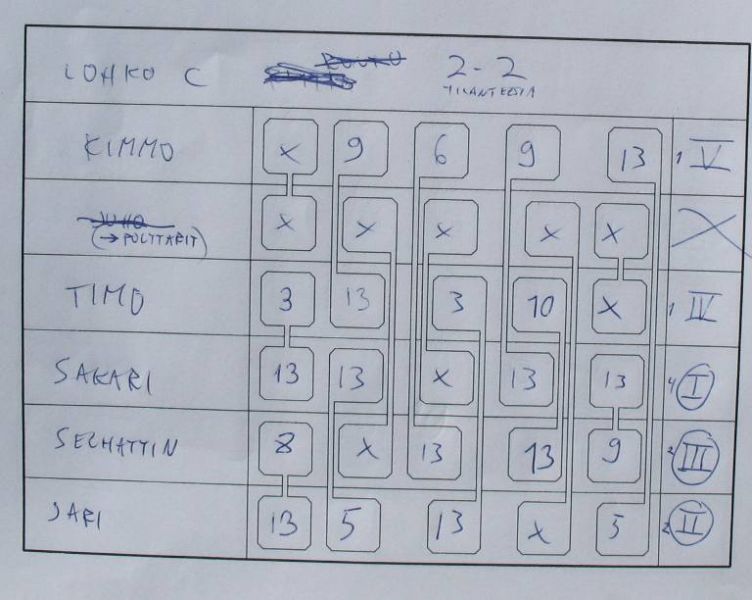 LOHKO C 2-2
TILANTEESTA
KIMMO x 9 6 9 13 1 V
JUHO x x x x x X
(→ POLTTARIT)
TIMO 3 13 3 10 x 1 IV
SAKARI 13 13 x 13 13 4 I
SELHATTIN 8 x 13 13 9 2 III
JARI 13 5 13 x 5 2 II